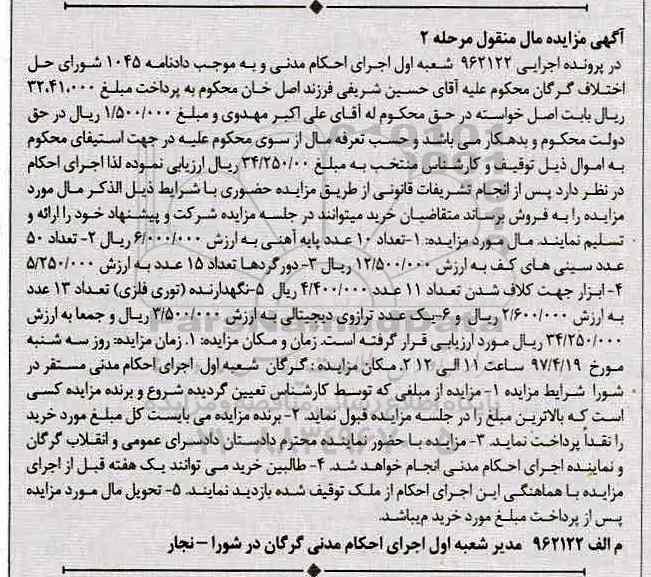 آگهی مزایده مال منقول مرحله ۲
در پرونده اجرایی ۹۶۲۱۲۲ شعبه اول اجرای احکام مدنی و به موجب دادنامه ۱۰۴۵ شورای حل
اختلاف گرگان محکوم علیه آقای حسین شریفی فرزند اصل خان محکوم به پرداخت مبلغ ۳۲،۴۱،۰۰۰
ریال بابت اصل خواسته در حق محکوم له آقای علی اکبر مهدوی و مبلغ ۱/۵۰۰/۰۰۰ ریال در حق
دولت محکوم و بدهکار می باشد و حسب تعرفه مال از سوی محکوم علیه در جهت استیفای محکوم
به اموال ذیل توقیف و کارشناس منتخب به مبلغ ۳۴/۲۵۰/۰۰ ریال ارزیابی نموده لذا اجرای احکام
در نظر دارد پس از انجام تشریفات قانونی از طریق مزایده حضوری با شرایط ذیل الذکر مال مورد
مزایده را به فروش برساند متقاضیان خرید میتوانند در جلسه مزایده شرکت و پیشنهاد خود را ارائه و
تسلیم نمایند. مال مورد مزایده: ۱-تعداد ۱۰ عدد پایه آهنی به ارزش ۶/۰۰۰/۰۰۰ ریال ۲- تعداد ۵۰
عدد سینی های کف به ارزش ۱۲/۵۰۰/۰۰۰ ریال ۳-دورگردها تعداد ۱۵ عدد به ارزش ۵/۲۵۰/۰۰۰
۴- ابزار جهت کلاف شدن تعداد ۱۱ عدد ۴/۴۰۰/۰۰۰ ریال ۵-نگهدارنده (توری فلزی) تعداد ۱۳ عدد
به ارزش ۲/۶۰۰/۰۰۰ ریال و ۶-یک عدد ترازوی دیجیتالی به ارزش ۳/۵۰۰/۰۰۰ ریال و جمعا به ارزش
۳۴/۲۵۰/۰۰۰ ریال مورد ارزیابی قرار گرفته است. زمان و مکان مزایده: ۱. زمان مزایده: روز سه شنبه
مورخ ۹۷/۴/۱۹ ساعت ۱۱ الی ۱۲ ۲. مکان مزایده : گرگان شعبه اول اجرای احکام مدنی مستقر در
شورا شرایط مزایده ۱- مزایده از مبلغی که توسط کارشناس تعیین گردیده شروع و برنده مزایده کسی
است که بالاترین مبلغ را در جلسه مزایده قبول نماید. ۲- برنده مزایده می بایست کل مبلغ مورد خرید
را نقداً پرداخت نماید. ۳- مزایده با حضور نماینده محترم دادستان دادسرای عمومی و انقلاب گرگان
و نماینده اجرای احکام مدنی انجام خواهد شد. ۴- طالبین خرید می توانند یک هفته قبل از اجرای
مزایده با هماهنگی این اجرای احکام از ملک توقیف شده بازدید نمایند. ۵- تحویل مال مورد مزایده
پس از پرداخت مبلغ مورد خرید میباشد.
م الف ۹۶۲۱۲۲ مدیر شعبه اول اجرای احکام مدنی گرگان در شورا – نجار